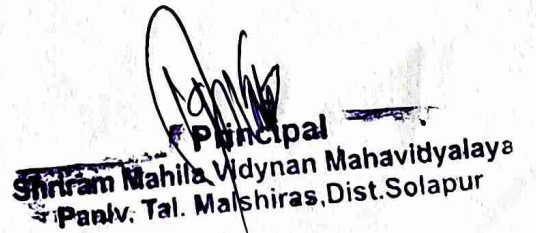 Principal
Shriram Mahila Vidynan Mahavidyalaya
Paniv, Tal. Malshiras,Dist.Solapur